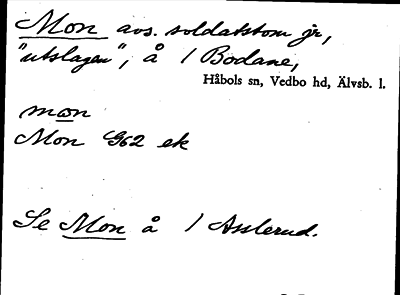 Mon avs. soldattom jr,
"utslagen", å 1 Bodane,
Håbols sn, Vedbo hd, Älvsb. l.
mon
Mon G62 ek
Se Mon å 1 Asslerud.